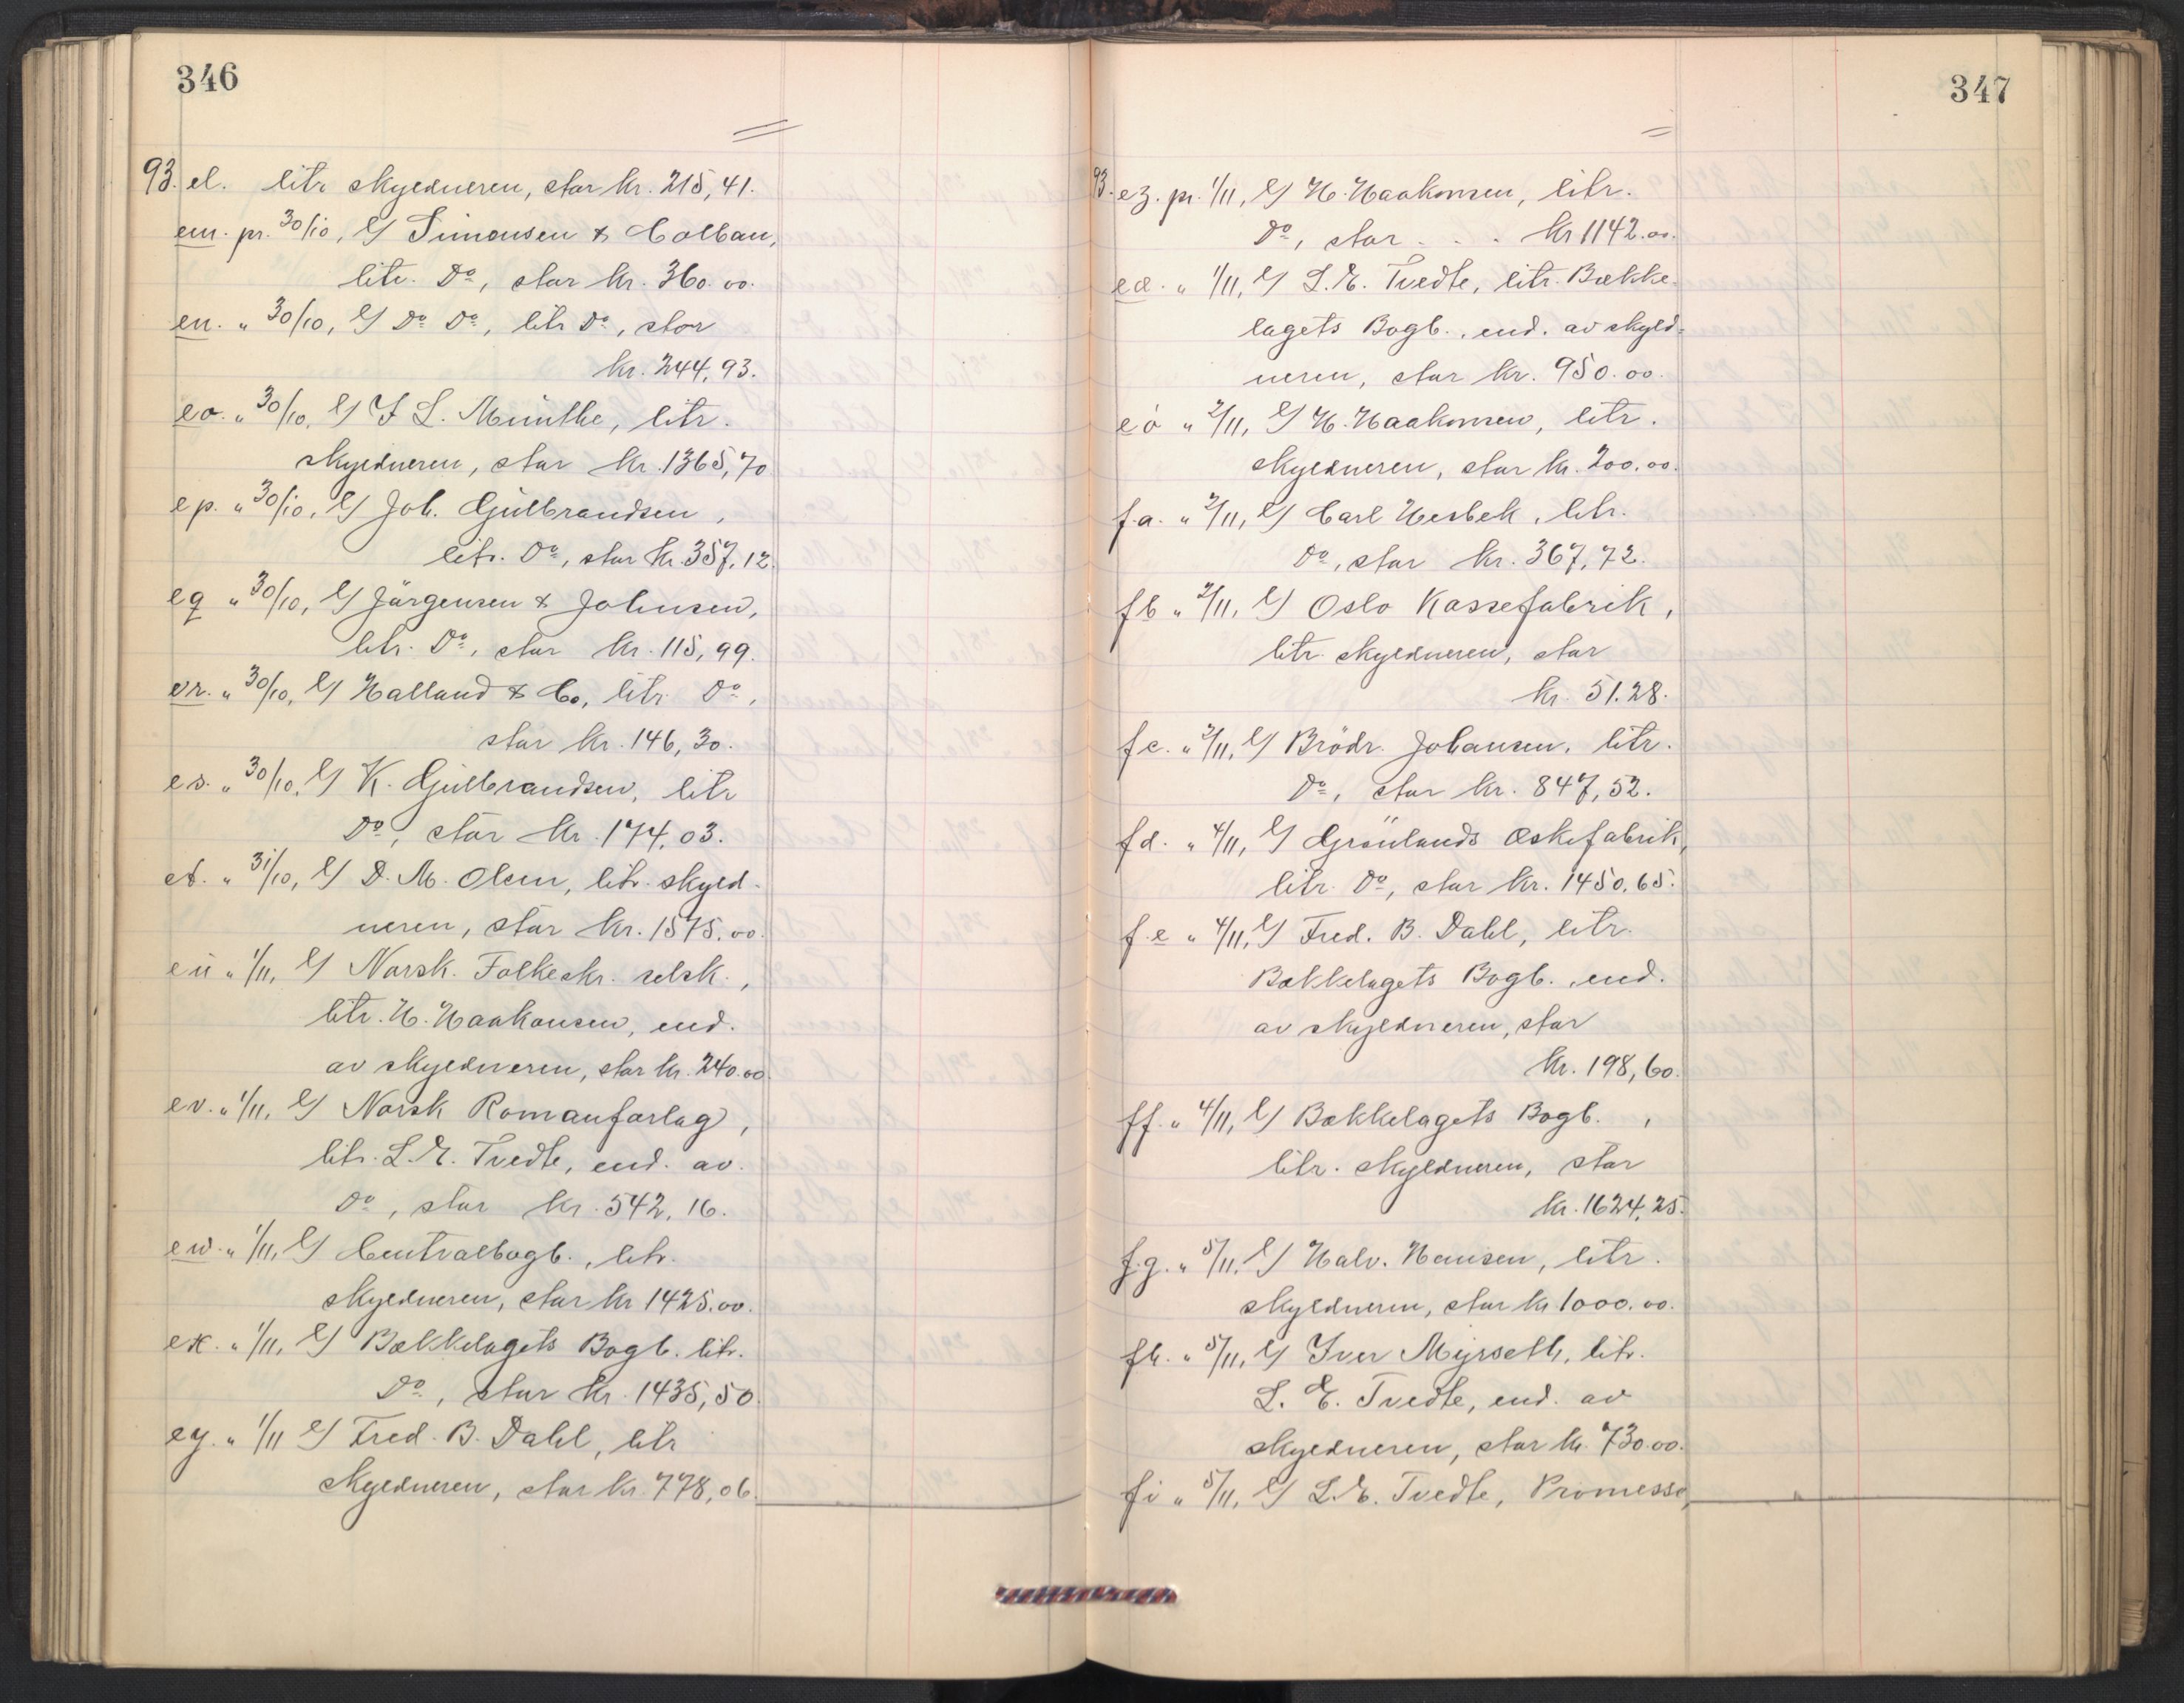 346
93. el. litr skyldneren, stor kr. 215,41.
em. pr. 30/10, l/ Simonsen & Colban,
litr. Do, stor kr. 360.00.
en. " 30/10, l/ Do Do, litr Do, stor
kr. 244,93.
eo. " 30/10, l/ J L. Münthe, litr.
skyldneren, stor kr. 1365,70
ep. " 30/10, l/ Joh. Gülbrandsen,
litr. Do, stor kr. 357,12.
eq " 30/10, l/ Jörgensen & Johnsen,
litr. Do, stor kr. 115,99.
er. " 30/10, l/ Halland & Co, litr Do,
stor kr. 146,30.
es. " 30/10, l/ K. Gülbrandsen, litr
Do, stor kr. 174,03.
et. " 31/10, l/ D. M. Olsen, litr. skyld-
neren, stor kr. 1575.00.
eü " 1/11, l/ Norsk. Folkeskr. selsk.,
litr. H. Haakonsen, end.
av skyldneren, stor kr. 240.00
ev. " 1/11, l/ Norsk Romanforlag,
litr. L. E. Tvedte, end. av.
Do, stor kr. 542,16.
ew. " 1/11, l/ Centralbogb., litr.
skyldneren, stor kr 1425.00.
ex. " 1/11, l/ Bækkelagets Bogb. litr.
Do, stor kr. 1435,50.
ey. " 1/11 l/ Fred. B. Dahl, litr
skyldneren, stor kr. 778,06.
347
93. ez. pr. 1/11, l/ H. Haakonsen, litr.
Do, stor . . . kr 1142.00.
eæ. " 1/11, l/ L. E. Tvedte, litr. Bække-
lagets Bogb., end. av skyld-
neren, stor kr. 950.00.
eö " 2/11, l/ H. Haakonsen, litr.
skyldneren, stor kr. 200.00.
f.a. " 2/11, l/ Carl Hesbek, litr.
Do, stor kr. 367,72.
fb " 2/11, l/ Oslo Kassefabrik,
litr. skyldneren, stor
kr. 51.28.
fc. " 2/11, l/ Brödr. Johansen, litr.
Do, stor kr. 847,52.
fd. " 4/11, l/ Grönlands Æskefabrik,
litr. Do, stor kr. 1450,65.
f.e " 4/11, l/ Fred. B. Dahl, litr.
Bækkelagets Bogb., end.
av skyldneren, stor
kr. 198,60.
ff. " 4/11, l/ Bækkelagets Bogb.,
litr. skyldneren, stor
kr. 1624,25.
f.g. " 5/11, l/ Halv. Hansen, litr.
skyldneren, stor kr 1000.00.
fh. " 5/11, l/ Iver Myrseth, litr.
L. E. Tvedte, end. av
skyldneren, stor kr. 730.00.
fi " 5/11, l/ L. E. Tvedte, Promesse,